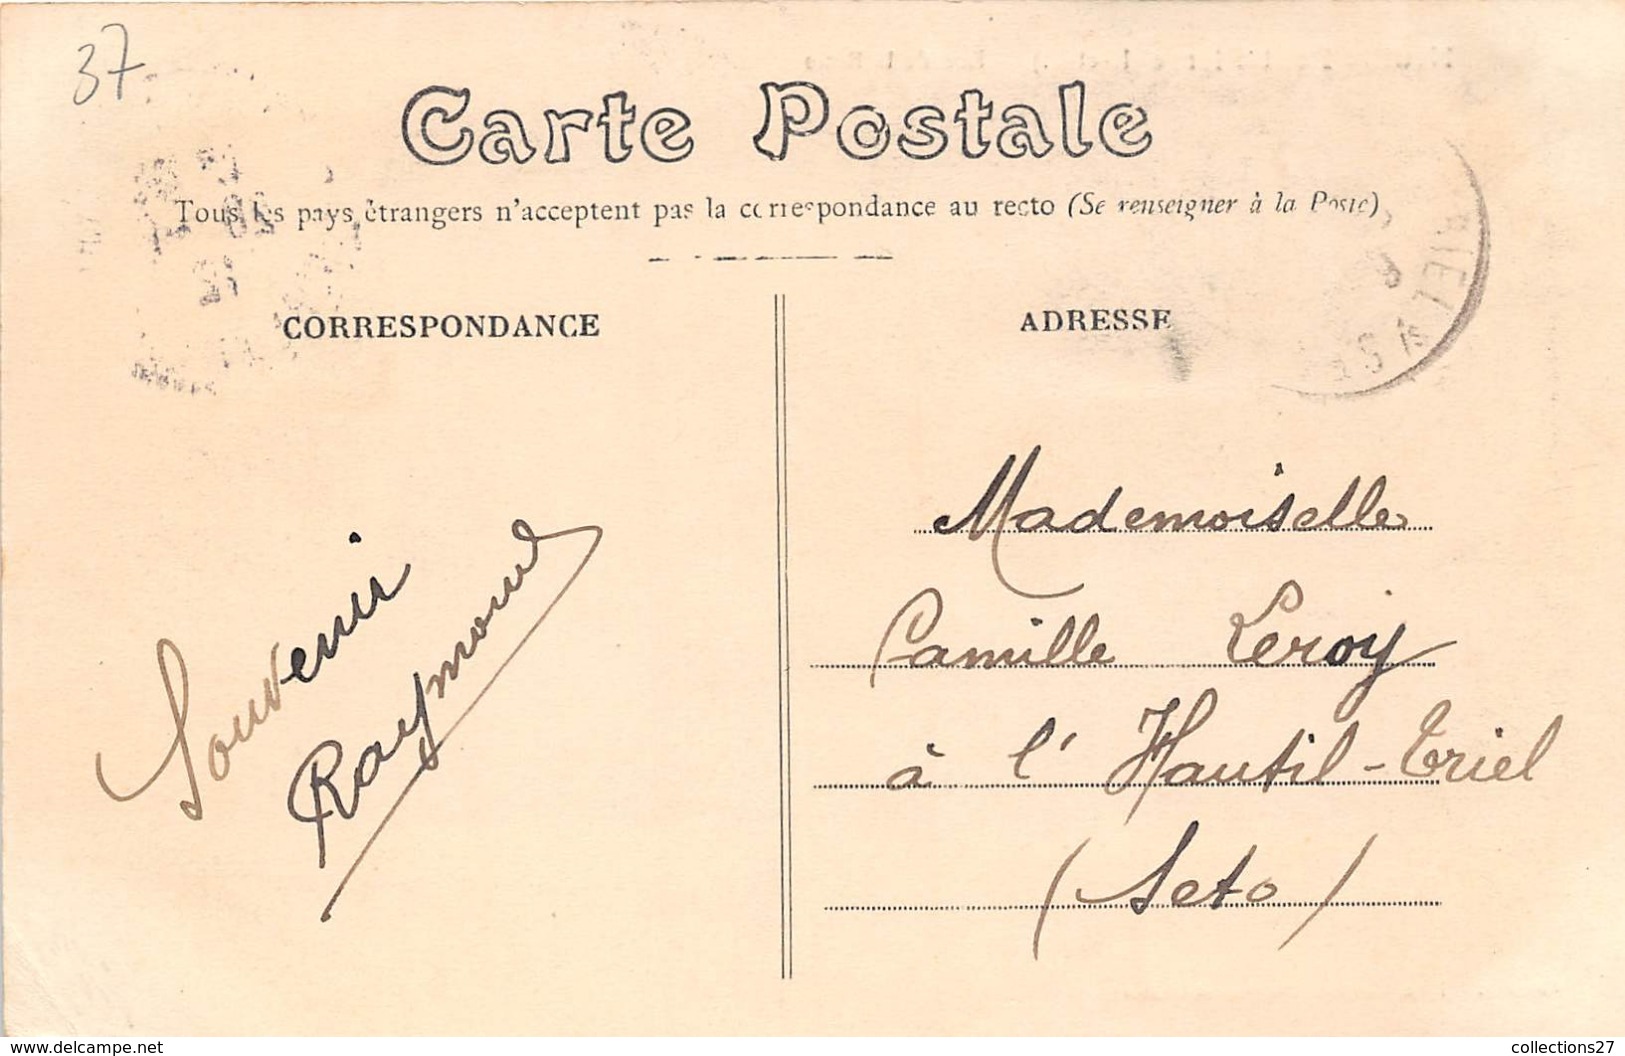 37
Carte Postale
Tous les pays étrangers n'acceptent pas la correspondance au recto (Se renseigner à la Poste)
CORRESPONDANCE
ADRESSE
Souvenir
Raymond
Mademoiselle
Camille Leroy
à l'Hautil-Triel
(Seto)
www.delcampe.net
collections27